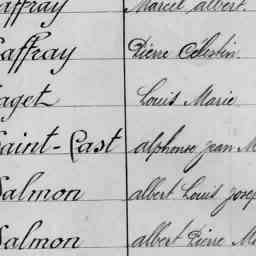 affray Marcel albert.
affray Pierre Célestin
aget Louis Marie
aint-Cast alphonse Jean M
almon albert Louis Josep
almon albert Pierre Ma